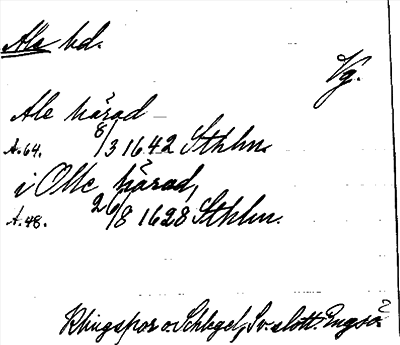 Ale hd.
Vg.
Ale härad
A.64. 8/3 1642 Sthlm.
i Olle härad,
A.48. 26/8 1628 Sthlm.
Klingspor o. Schlegel, Sv. slott. Engsö?